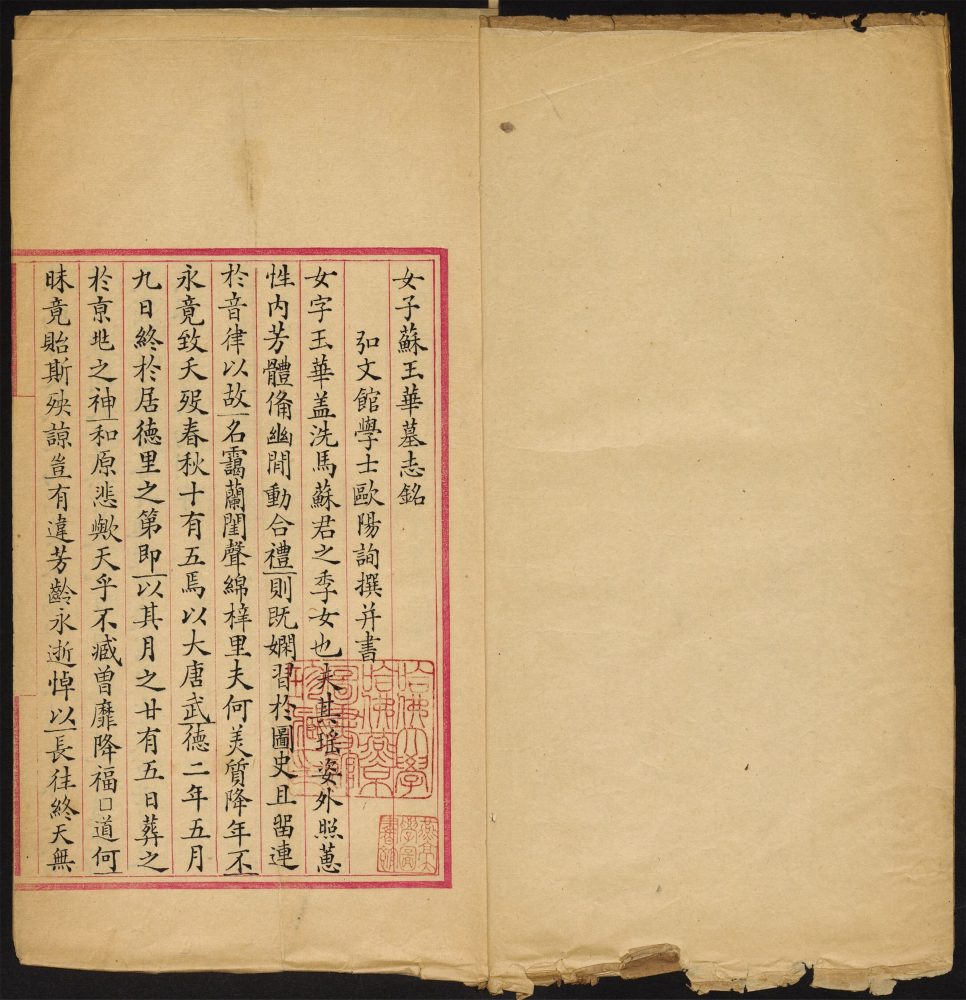 女子蘇玉華墓志銘
弘文館學士歐陽詢撰并書
女字玉華盖洗馬蘇君之季女也夫其瑶姿外照蕙
性内芳體俻幽閒動合禮則既嫻習於圖史且留連
於音律以故名靄蘭閨聲綿梓里夫何美質降年不
永竟致夭殁春秋十有五焉以大唐武德二年五月
九日終於居德里之第即以其月之廿有五日葬之
於京兆之神和原悲歟天乎不臧曾靡降福口道何
昧竟貽斯殃諒豈有違芳齡永逝悼以長往終天無
哈佛大學
哈佛燕京
圖書館
珍藏印
燕京
學圖
書館